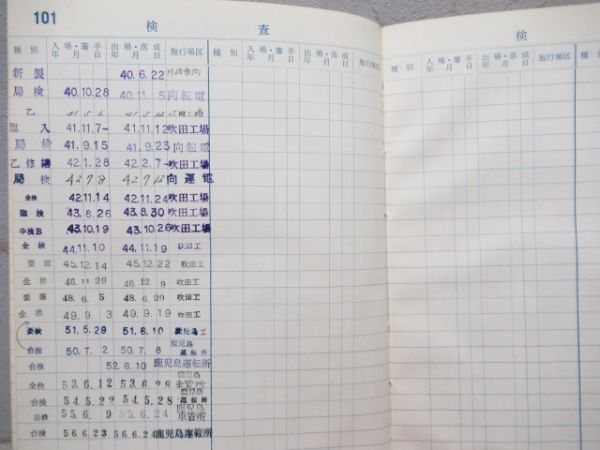 101
検 査
種別 入場・著手 年月日 出場・落成 年月日 施行場区 種別 入場・著手 年月日 出場・落成 年月日 施行場区
新製 40.6.22
局検 40.10.28 40.11.5 向転電
乙
臨入 41.11.7 41.11.12 吹田工場
局検 41.9.15 41.9.23 向転電
乙修繕 42.1.28 42.2.7 吹田工場
局検 42 7 8 42 7 12 向運電
全検 42.11.14 42.11.24 吹田工場
臨検 43.8.26 43.8.30 吹田工場
中検B 43.10.19 43.10.26 吹田工場
全検 44.11.10 44.11.19 吹田工
要部 45.12.14 45.12.22 吹田工
全検 46.11 29 46.12.9 吹田工
要部 48.6.5 48.6.20 吹田工
全検 49.9.3 49.9.19 吹田工
要検 51.5.29 51.6.10 鹿児島工
台検 50.7.2 50.7.8 鹿児島運転所
52.6.10 鹿児島運転所
全検 53.6.12 53.6.28
台検 54.5.22 54.5.28 鹿児島運転所
要検 55.6.9 55.6.24 鹿児島車管所
台検 56.6.23 56.6.24 鹿児島運転所
検
種別 入場・著手 年月日 出場・落成 年月日 施行場区 種別